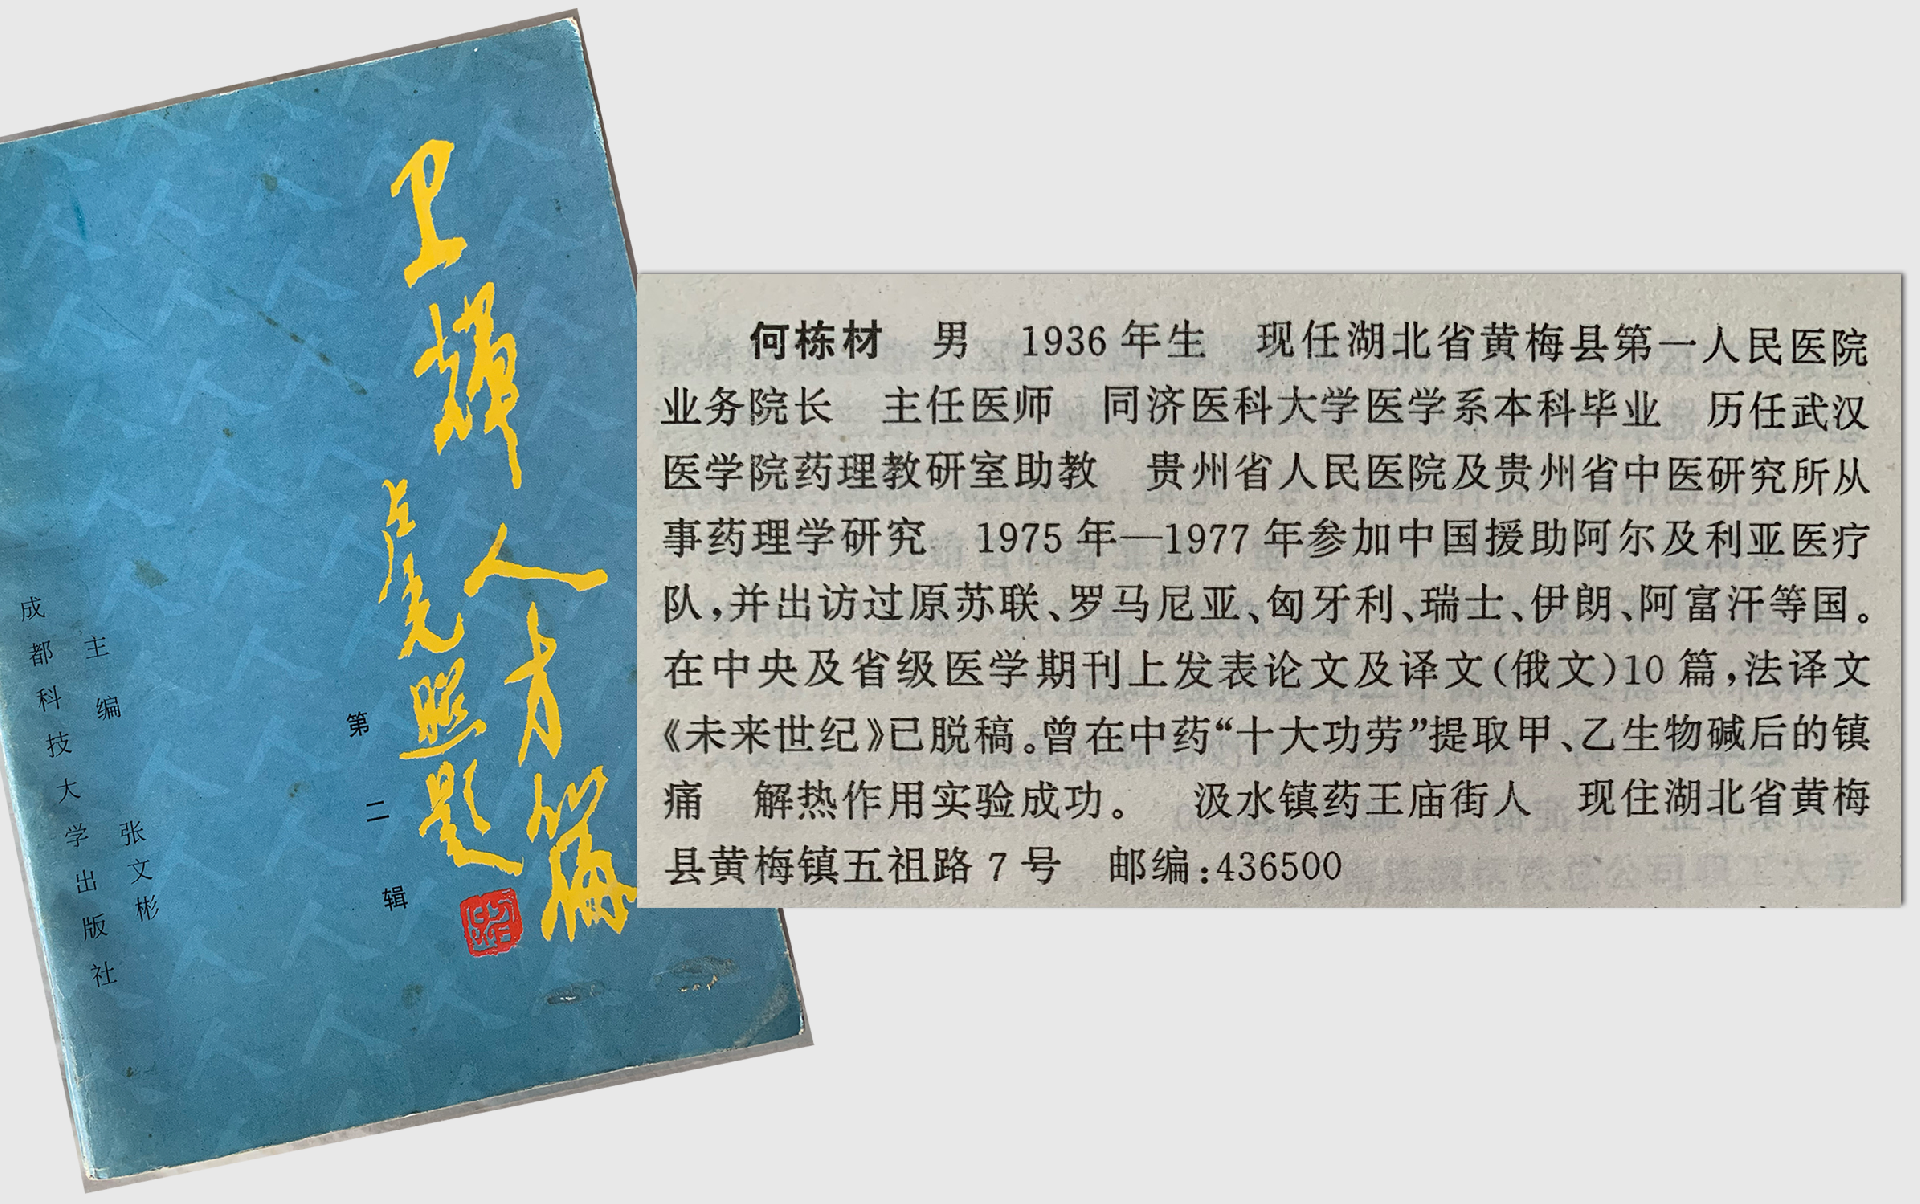 卫辉人才篇
卢光照题
第二辑
主编 张文彬
成都科技大学出版社
何栋材 男 1936年生 现任湖北省黄梅县第一人民医院
业务院长 主任医师 同济医科大学医学系本科毕业 历任武汉
医学院药理教研室助教 贵州省人民医院及贵州省中医研究所从
事药理学研究 1975年—1977年参加中国援助阿尔及利亚医疗
队,并出访过原苏联、罗马尼亚、匈牙利、瑞士、伊朗、阿富汗等国。
在中央及省级医学期刊上发表论文及译文(俄文)10篇,法译文
《未来世纪》已脱稿。曾在中药“十大功劳”提取甲、乙生物碱后的镇
痛 解热作用实验成功。 汲水镇药王庙街人 现住湖北省黄梅
县黄梅镇五祖路7号 邮编:436500